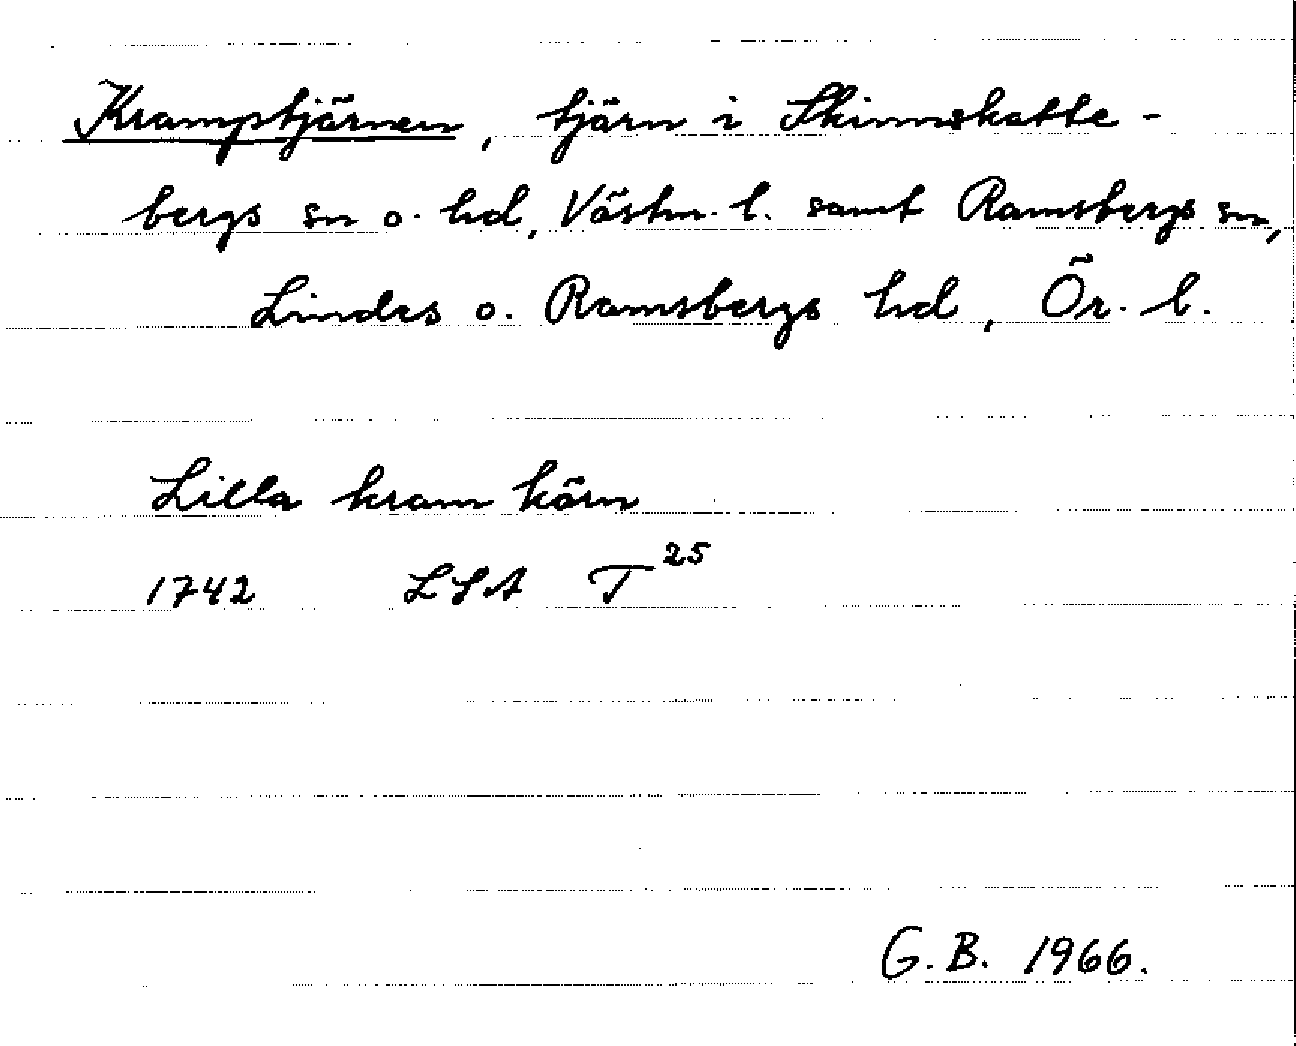 Kramptjärnen, tjärn i Skinnskatte-
bergs sn o. hd, Västm. l. samt Ramsbergs sn,
Lindes o. Ramsbergs hd, Ör. l.
Lilla kram körn
1742 LSA T25
G.B. 1966.